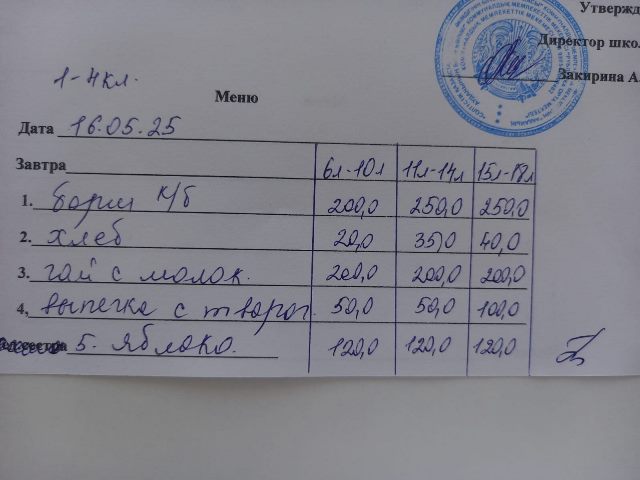 Утвержд
Директор шко
Закирина А.
1-4 кл.
Меню
Дата 16.05.25
Завтра 6л-10л 11л-14л 15л-18л
1. Борщ к/б 200,0 250,0 250,0
2. хлеб 20,0 35,0 40,0
3. чай с молок. 200,0 200,0 200,0
4, выпечка с творог. 50,0 50,0 100,0
сестра 5. Яблоко. 120,0 120,0 120,0